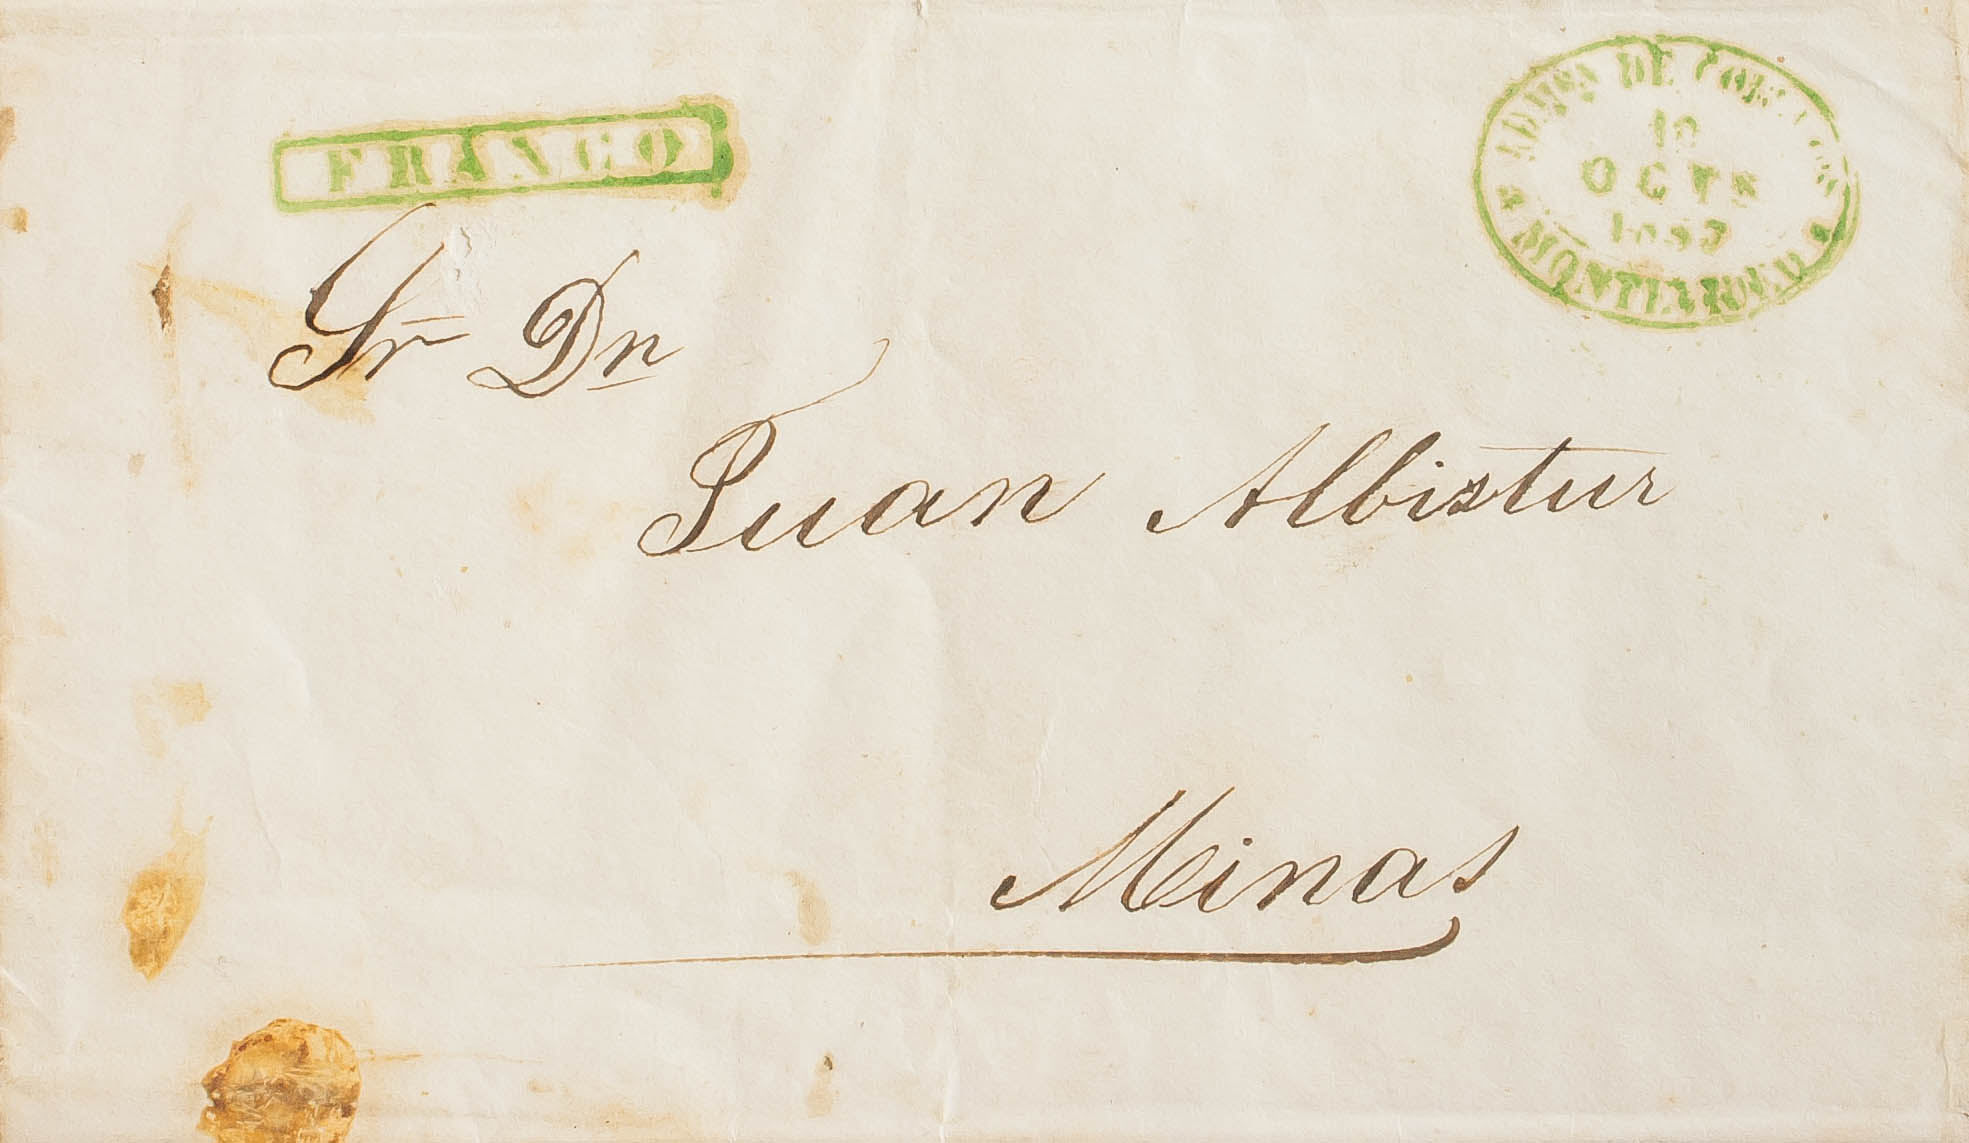 FRANCO
ADMON DE CORREOS
10
OCTE
MONTEVIDEO
Sr Dn
Juan Albistur
Minas